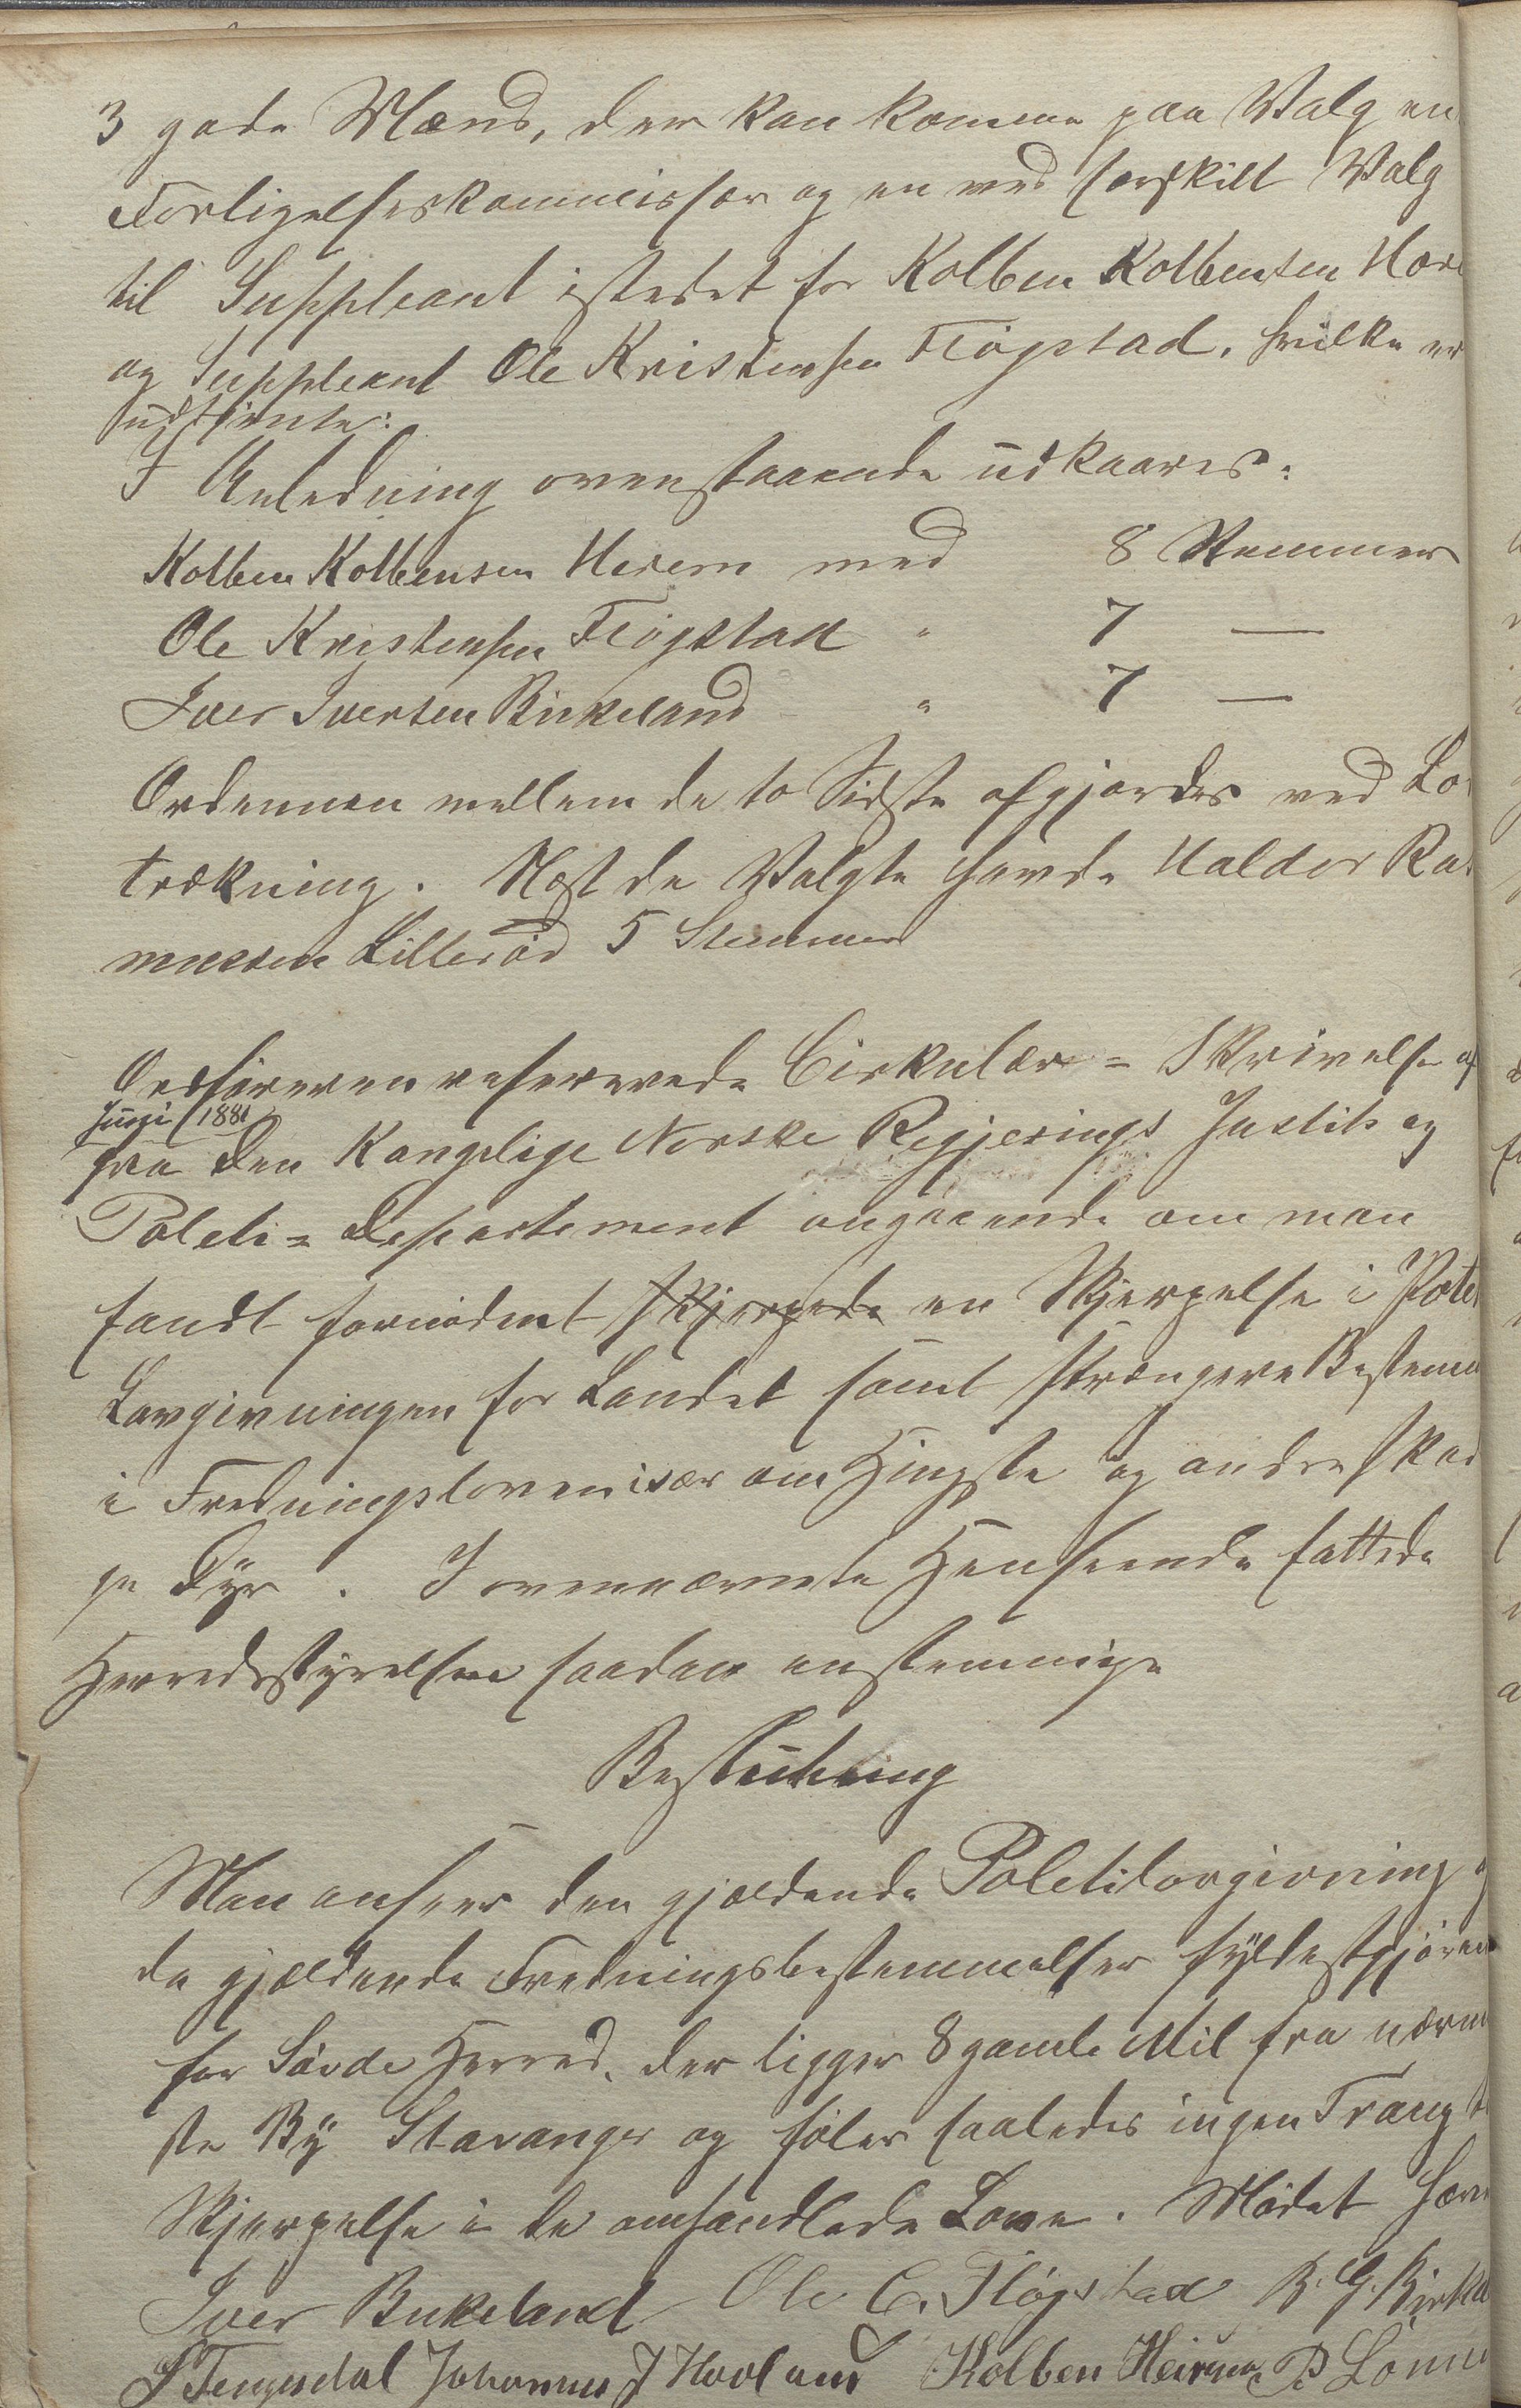 3 gode Mænd, der kan komme paa Valg en
Forligelseskommissær og en ved særskilt Valg
til Suppleant istedet for Kolben Kolbensen
og Suppleant Ole Kristensen Fløgstad, hvilke er
udtjente:
I Anledning ovenstaaende udkaares:
Kolben Kolbensen med 8 Stemmer
Ole Kristensen Fløgstad " 7 —
Iver Iversen Birkeland " 7 —
Ordenen mellem de to Sidste afgjordes ved Lod
trækning. Næst de Valgte havde Haldor Ras
mussen Lillerød 5 Stemmer
Ordføreren refererede Cirkulær = Skrivelse af
Juni 1881
fra Den Kongelige Norske Regjerings Justits og
Politi = Departement angaaende om man
fandt fornødent skjerpede en Skjerpelse i Politi
Lovgivningen for Landet samt strængere Bestemm
i Fredningsloven især om Hingste og andre skad
ge Dyr. I ovennævnte Henseende fattede
Herredsstyrelsen saadan enstemmige
Beslutning
Man anseer den gjældende Politilovgivning og
de gjældende Fredningsbestemmelser fyldestgjøren
for Søvde Herred, der ligger 8 gamle Mil fra nærm
ste By Stavanger og føler saaledes ingen Trang til
Skjerpelse i de omhandlede Love. Mødet hæv
Iver Birkeland Ole C. Fløgstad B. G. Birkel
S Tengesdal Johannes J Hovland Kolben P Lønn